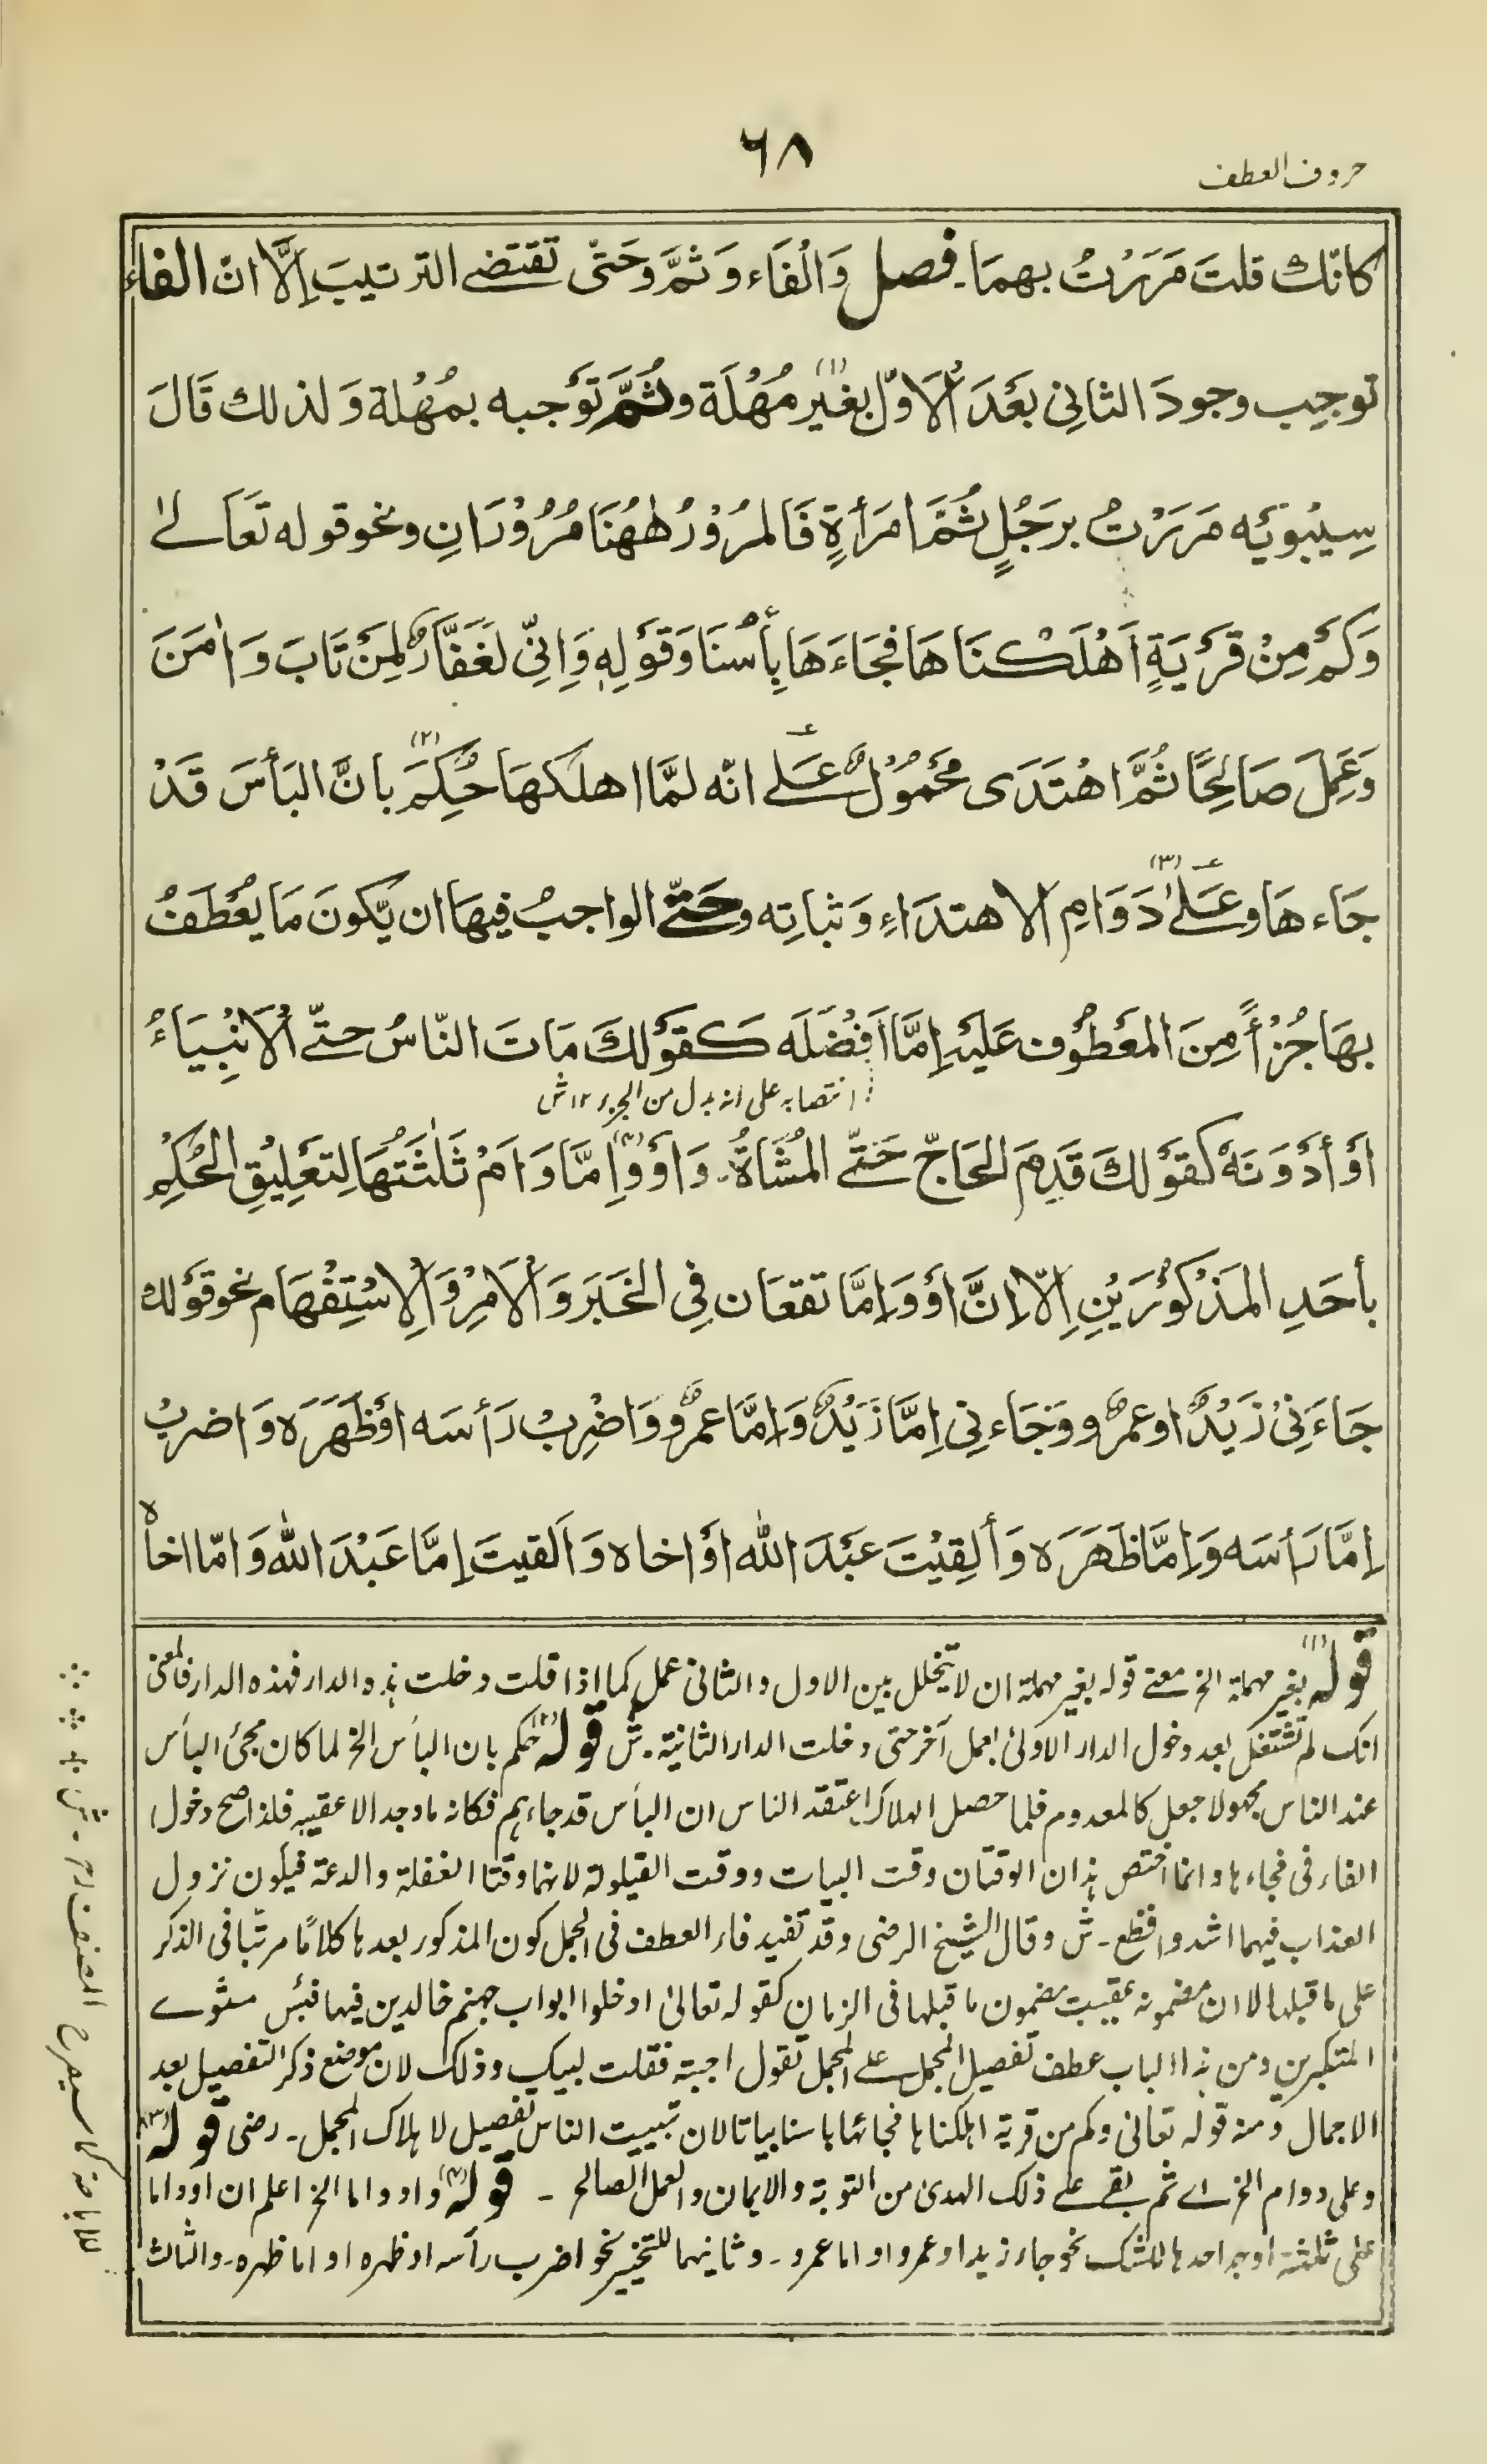 حروف العطف
٦٨
كانّك قلتَ مَرَرْتُ بهمَا۔ فصل وَالْفَاء وَثمَّ وحَتّى تقتضے الترتيبَ اِلَّا انّ الفاء
توجِب وجودَ الثانِى بَعْدَ الْاَوّل بغَيْر (١) مُهْلَة وثُمَّ تَوْجبه بمُهْلة وَلذلك قَالَ
سِيْبوَيْه مَرَرْتُ برَجُلٍ ثُمَّ امْرَأةٍ فَالمرُوْرُ هٰهُنَا مُرُوْرَانِ ونحو قوله تَعَالےٰ
وَكَمْ مِنْ قَرْيَةٍ اَهْلَكْنَاهَا فَجَاءَهَا بَأْسُنَا وَقَوْلِهٖ وَاِنِّى لَغَفَّارٌ لِمَنْ تَابَ وَاٰمَنَ
وَعَمِلَ صَالِحًا ثُمَّ اهْتَدَى مَحْمُوْلٌ عَلٰے انّه لمَّا اهلكهَا حُكِمَ (٢) بانَّ البَأْسَ قَدْ
جَاءهَا وعَلٰے (٣) دَوَامِ الاهتدَاءِ وَثباتِه وحَتّٰے الواجبُ فِيهَا ان يّكونَ مَا يُعْطَفُ
بهَا جُزْأً مِنَ المعْطُوْف عَلَيْهِ اِمَّا اَفْضَلَه كَقَوْلكَ مَاتَ النّاسُ حتّٰے الْاَنْبِيَاءُ
انتصابہ علی انہ بدل من الجزء ۱۲ش
اَوْ أدْوَنَهٗ كقَوْلكَ قَدِمَ الحَاجّ حَتّٰے المُشَاةُ۔ وَاَوْ (٤) وَاِمَّا وَاَمْ ثَلٰثَتُهَا لِتَعْلِيْقِ الحُكْمِ
بأحَدِ المَذْكُوْرَيْنِ اِلّا اِنَّ اَوْ وَاِمَّا تقعَان فِى الخَبَر وَالْاَمْرِ وَالْاِسْتِفْهَام نحو قَوْلك
جَاءَنِىْ زَيْدٌ او عمرٌو وَجَاءنِى اِمَّا زَيْدٌ وَاِمَّا عمرٌو وَاضْرِبْ رَأسَه اَوْ ظَهْرَه وَاضربْ
اِمَّا رَأسَه وَاِمَّا ظَهْرَه وَألَقِيْتَ عَبْدَ اللّٰه اَوْ اخاه وَاَلقيتَ اِمَّا عَبْدَ اللّٰه وَامّا اخاه
قولہ (١) بغیر مہملۃ الخ معنے قولہ بغیر مہملۃ ان لا یتخلل بین الاول والثانی عمل کما اذا قلت دخلت ہذہ الدار فہذہ الدار فالمعنی
انک لم تشتغل بعد دخول الدار الاولیٰ بعمل آخر حتی دخلت الدار الثانیۃ۔ ش قولہ (٢) حکم بان البأس الخ لما کان مجئ البأس
عند الناس مجہولا جعل کالمعدوم فلما حصل الہلاک اعتقد الناس ان البأس قد جاءہم فکانہ ما وجد الا عقیبہ فلذا صح دخول
الفاء فی فجاءہا وانما اختص ہذان الوقتان وقت البیات ووقت القیلولۃ لانہما وقتا الغفلۃ والدعۃ فیکون نزول
العذاب فیہما اشد وافظع۔ ش وقال الشیخ الرضی وقد تفید فاء العطف فی الجمل کون المذکور بعدہا کلامًا مرتّبا فی الذکر
علی ما قبلہا لا ان مضمونہ عقیب مضمون ما قبلہا فی الزمان کقولہ تعالیٰ ادخلوا ابواب جہنم خالدین فیہا فبئس مثوے
المتکبرین ومن ہذا الباب عطف تفصیل المجمل علے المجمل تقول اجبتہ فقلت لبیک وذلک لان موضع ذکر التفصیل بعد
الاجمال ومنہ قولہ تعالی وکم من قریۃ اہلکناہا فجائہا باسنا بیاتا لان تبییت الناس تفصیل لاہلاک المجمل۔ رضی قولہ (٣)
وعلی دوام الخ اے ثم بقے علے ذلک الہدیٰ من التوبۃ والایمان والعمل الصالح ۔ قولہ (٤) واو واما الخ اعلم ان او واما
علی ثلثۃ اوجہ احدہا للشک نحو جاء زید او عمرو او اما عمرو ۔ وثانیہما للتخییر نحو اضرب رأسہ او ظہرہ او اما ظہرہ۔ والثالث